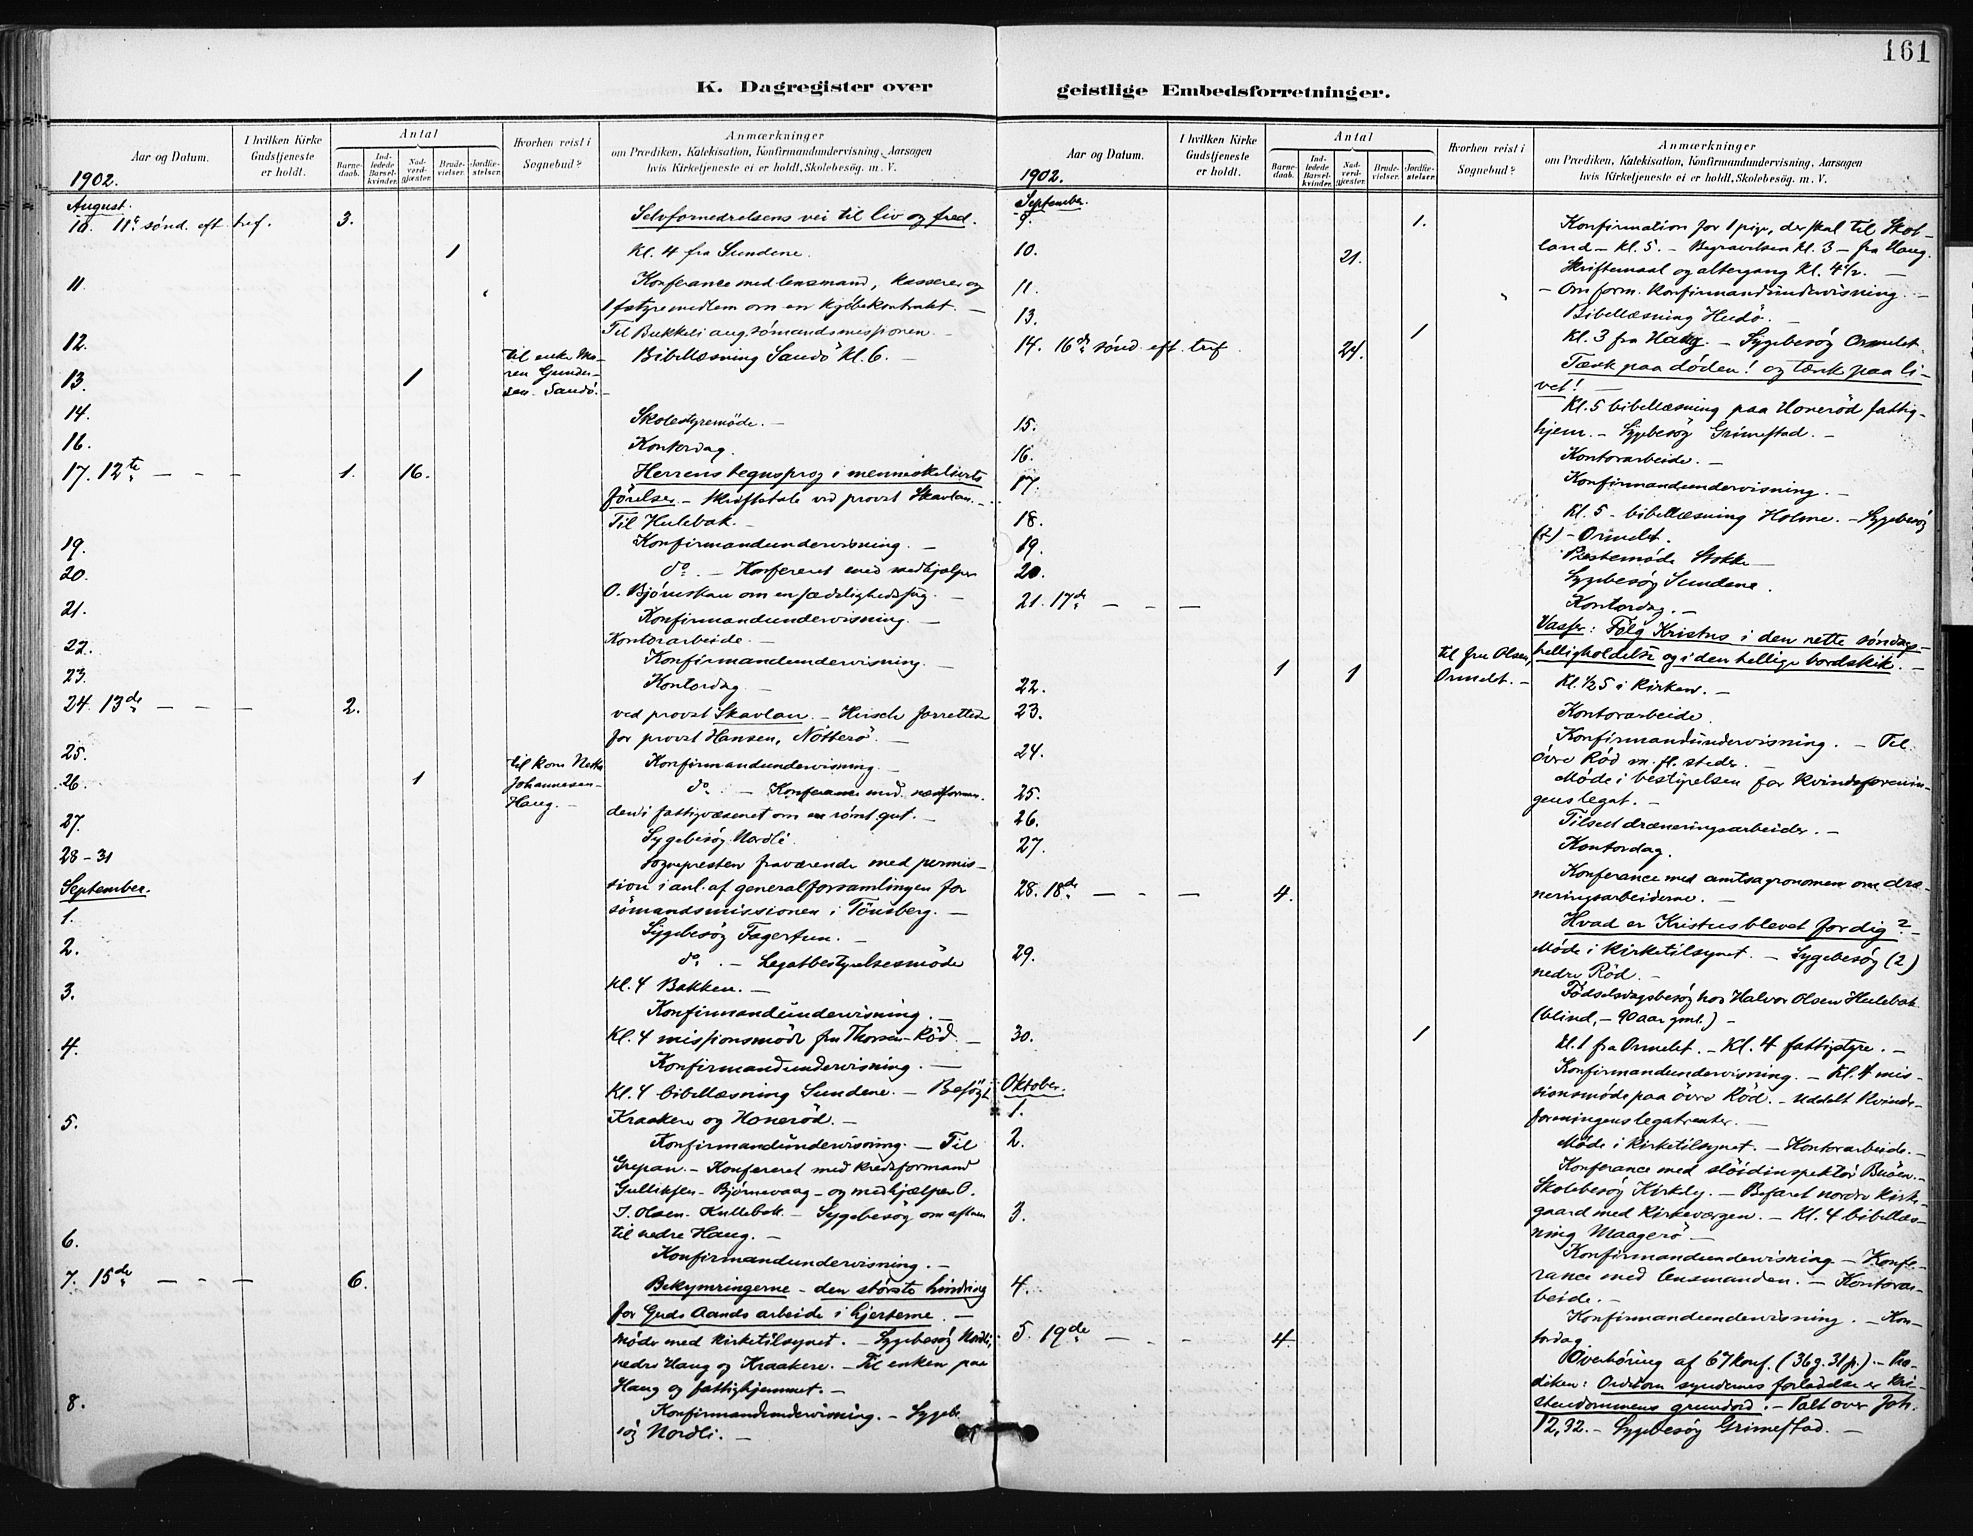 161
K. Dagregister over geistlige Embedsforretninger.
Aar og Datum.
I hvilken Kirke Gudstjeneste er holdt.
Antal
Barne-daab.
Ind-ledede Barsel-kvinder.
Nad-verd-gjæster.
Brude-vielser.
Jordfæ-stelser.
Hvorhen reist i Sognebud?
Anmærkninger
om Prædiken, Katekisation, Konfirmandundervisning, Aarsagen
hvis Kirketjeneste ei er holdt, Skolebesøg. m. V.
1902.
August.
10. 11te sønd. eft. tref. 3. Selvfornedrelsens vei til liv og fred.
1 Kl. 4 fra Sundene.
11. Konferance med lensmand, kasserer og
1 fstyremedlem om en kjøbekontrakt. —
Til Bukkeli ang. sømandsmissionen. —
12. Bibellæsning Sandö kl. 6. —
13. 1 til enke Ma-
ren Gunder-
sen Sandö. —
14. Skolestyremöde. —
16. Kontordag.
17. 12te — - — 1. 16. Herrens tegnsprog i menneskelivets
förelser. — Skriftetale ved provst Skavlan. —
Til Hulebak. —
19. Konfirmandundervisning. —
20. do. — Konfereret med medhjælper
O. Bjørnskau om en sædelighedssag. —
21. Konfirmandundervisning. —
Kontorarbeide. —
22. Konfirmandundervisning. —
23. Kontordag. —
24. 13de — - — 2. ved provst Skavlan. — Hirsch forrettede
for provst Hansen, Nötterö. —
25. Konfirmandundervisning. —
26. 1 til kone
Johannesen
Haug. —
do. — Konferance med
den i fattigvæsenet om en römt gut. —
27. Sygebesög Nordli.
28-31 Sognepresten fraværende med permis-
sion i anl. af generalforsamlingen for
sömandsmissionen i Tönsberg. —
September.
1. Sygebesög Fagertun. —
2. do. — Legatbestyrelsesmöde
kl. 4 Bakken. —
3. Konfirmandundervisning. —
Kl. 4 missionsmöde fru Thorsen-Röd. —
4. Konfirmandundervisning. —
Kl. 4 bibellæsning Sundene. — Besögt
Kraakere og Honeröd. —
5. Konfirmandundervisning. — Til
Grepan. — Konfereret med kredsformand
Gulliksen - Bjørnevaag — og medhjælper O.
J. Olsen - Hullebak. — Sygebesög om aftnen
til nedre Haug. —
6. Konfirmandundervisning. —
7. 15de — - — 6. Bekymringerne - den störste hindring
for Guds Aands arbeide i hjerterne. —
Möde med kirketilsynet. — Sygebesög Nordli,
nedre Haug og Kraakere. — Til enken paa
Haug og fattighjemmet. —
8. Konfirmandundervisning. — Sygebe-
sög Nordli. —
Aar og Datum.
I hvilken Kirke Gudstjeneste er holdt.
Antal
Barne-daab.
Ind-ledede Barsel-kvinder.
Nad-verd-gjæster.
Brude-vielser.
Jordfæ-stelser.
Hvorhen reist i Sognebud?
Anmærkninger
om Prædiken, Katekisation, Konfirmandundervisning, Aarsagen
hvis Kirketjeneste ei er holdt. Skolebesøg. m. V.
1902.
September.
9. 1. Konfirmation for 1 pige, der skal til Skot-
land — kl. 5. — Begravelsen kl. 3 — fra Haug.
10. 21. Skriftemaal og altergang kl. 4½. —
— Om form. konfirmandundervisning. —
11. Bibellæsning Hudö. —
13. 1 Kl. 3 fra Haug. — Sygebesög Ormelet.
14. 16de sönd. eft. tref. 24. Tænk paa döden! og tænk paa li-
vet! —
Kl. 5 bibellæsning paa Honeröd fattig-
hjem. — Sygebesög Grimestad. —
15. Kontorarbeide. —
16. Konfirmandundervisning. —
17. Kl. 5 — bibellæsning Holme. — Sygebesög
— Ormelet.
18. Prestemöde Stokke —
19. Sygebesög Sundene.
20. Kontordag. —
21. 17de — - — Vasser: Fölg Kristus i den rette söndags-
helligholdelse og i den hellige bordskik. —
1 1 til fru Olsen,
Ormelet. —
Kl. ½5 i kirken. —
22. Kontorarbeide.
23. Konfirmandundervisning. — Til
övre Röd m. fl. steder. —
24. Möde i bestyrelsen for kvindeforenin-
gens legat. —
25. Tilseet dræneringsarbeider. —
26. Kontordag.
27. Konferance med amtsagronomen om dræ-
neringsarbeiderne. —
28. 18de — - — 4. Hvad er Kristus blevet for dig? —
Möde i kirketilsynet. — Sygebesög (2)
nedre Röd. —
29. Födselsdagsbesög hos Halvor Olsen Hulebak
(blind, — 90 aar gml.) —
30. 1 Kl. 1 fra Ormelet. — Kl. 4 fattigstyre. —
Oktober.
1. Konfirmandundervisning. — Kl. 4 mis-
sionsmöde paa övre Röd. — Uddelt kvinde-
foreningens legatrenter. —
2. Möde i kirketilsynet. — Kontorarbeide. —
Konferance med slöidinspektör —
Skolebesög Kirkely. — Befaret nordre kirke-
gaard med kirkeværgen. — Kl. 4 bibellæs-
ning Maagerö —
3. Konfirmandundervisning — Konfe-
rance med lensmanden. — Kontorar-
beide. —
4. Konfirmandundervisning. — Kon-
tordag.
5. 19de — - — 4. Overhöring af 67 konf. (36 g. 31 p.) — Præ-
diken: Ordet om syndernes forladelse er kri-
stendommens grundord. — Talt over Joh.
12,32. — Sygebesög Grimestad. —